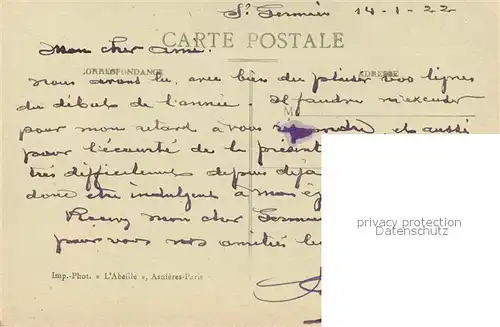 St Sernin 14-1-22
CARTE POSTALE
Mon cher ami.
CORRESPONDANCE
ADRESSE
nous avons lu, avec bien du plaisir vos lignes
du début de l'année. Il faudra m'excuser
M
pour mon retard à vous répondre, et aussi
pour l'écourté de la présent
très difficilement depuis déjà
donc être indulgent à mon ég
Recevez mon cher
pour vous nos amitiés les
privacy protection
Imp.-Phot. « L'Abeille », Asnières-Paris